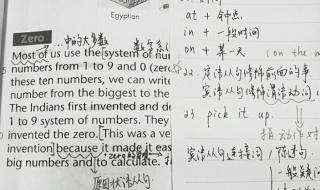 Egyptian
at + 钟点
in + 一段时间
on + 某一天
(on the m
Zero
...中的大多数
数字系
Most of us use the system of nu
numbers from 1 to 9 and 0 (zer
these ten numbers, we can write
number from the biggest to the
The Indians first invented and de
1 to 9 system of numbers. They
invented the zero. This was a ve
invention because it made it eas
big numbers and to calculate.
原因状语从句
22. 定语从句修饰前面的事
宾语从句修饰谓语动词
23. pick it up.
宾语从句连接词
陈述句
一般疑